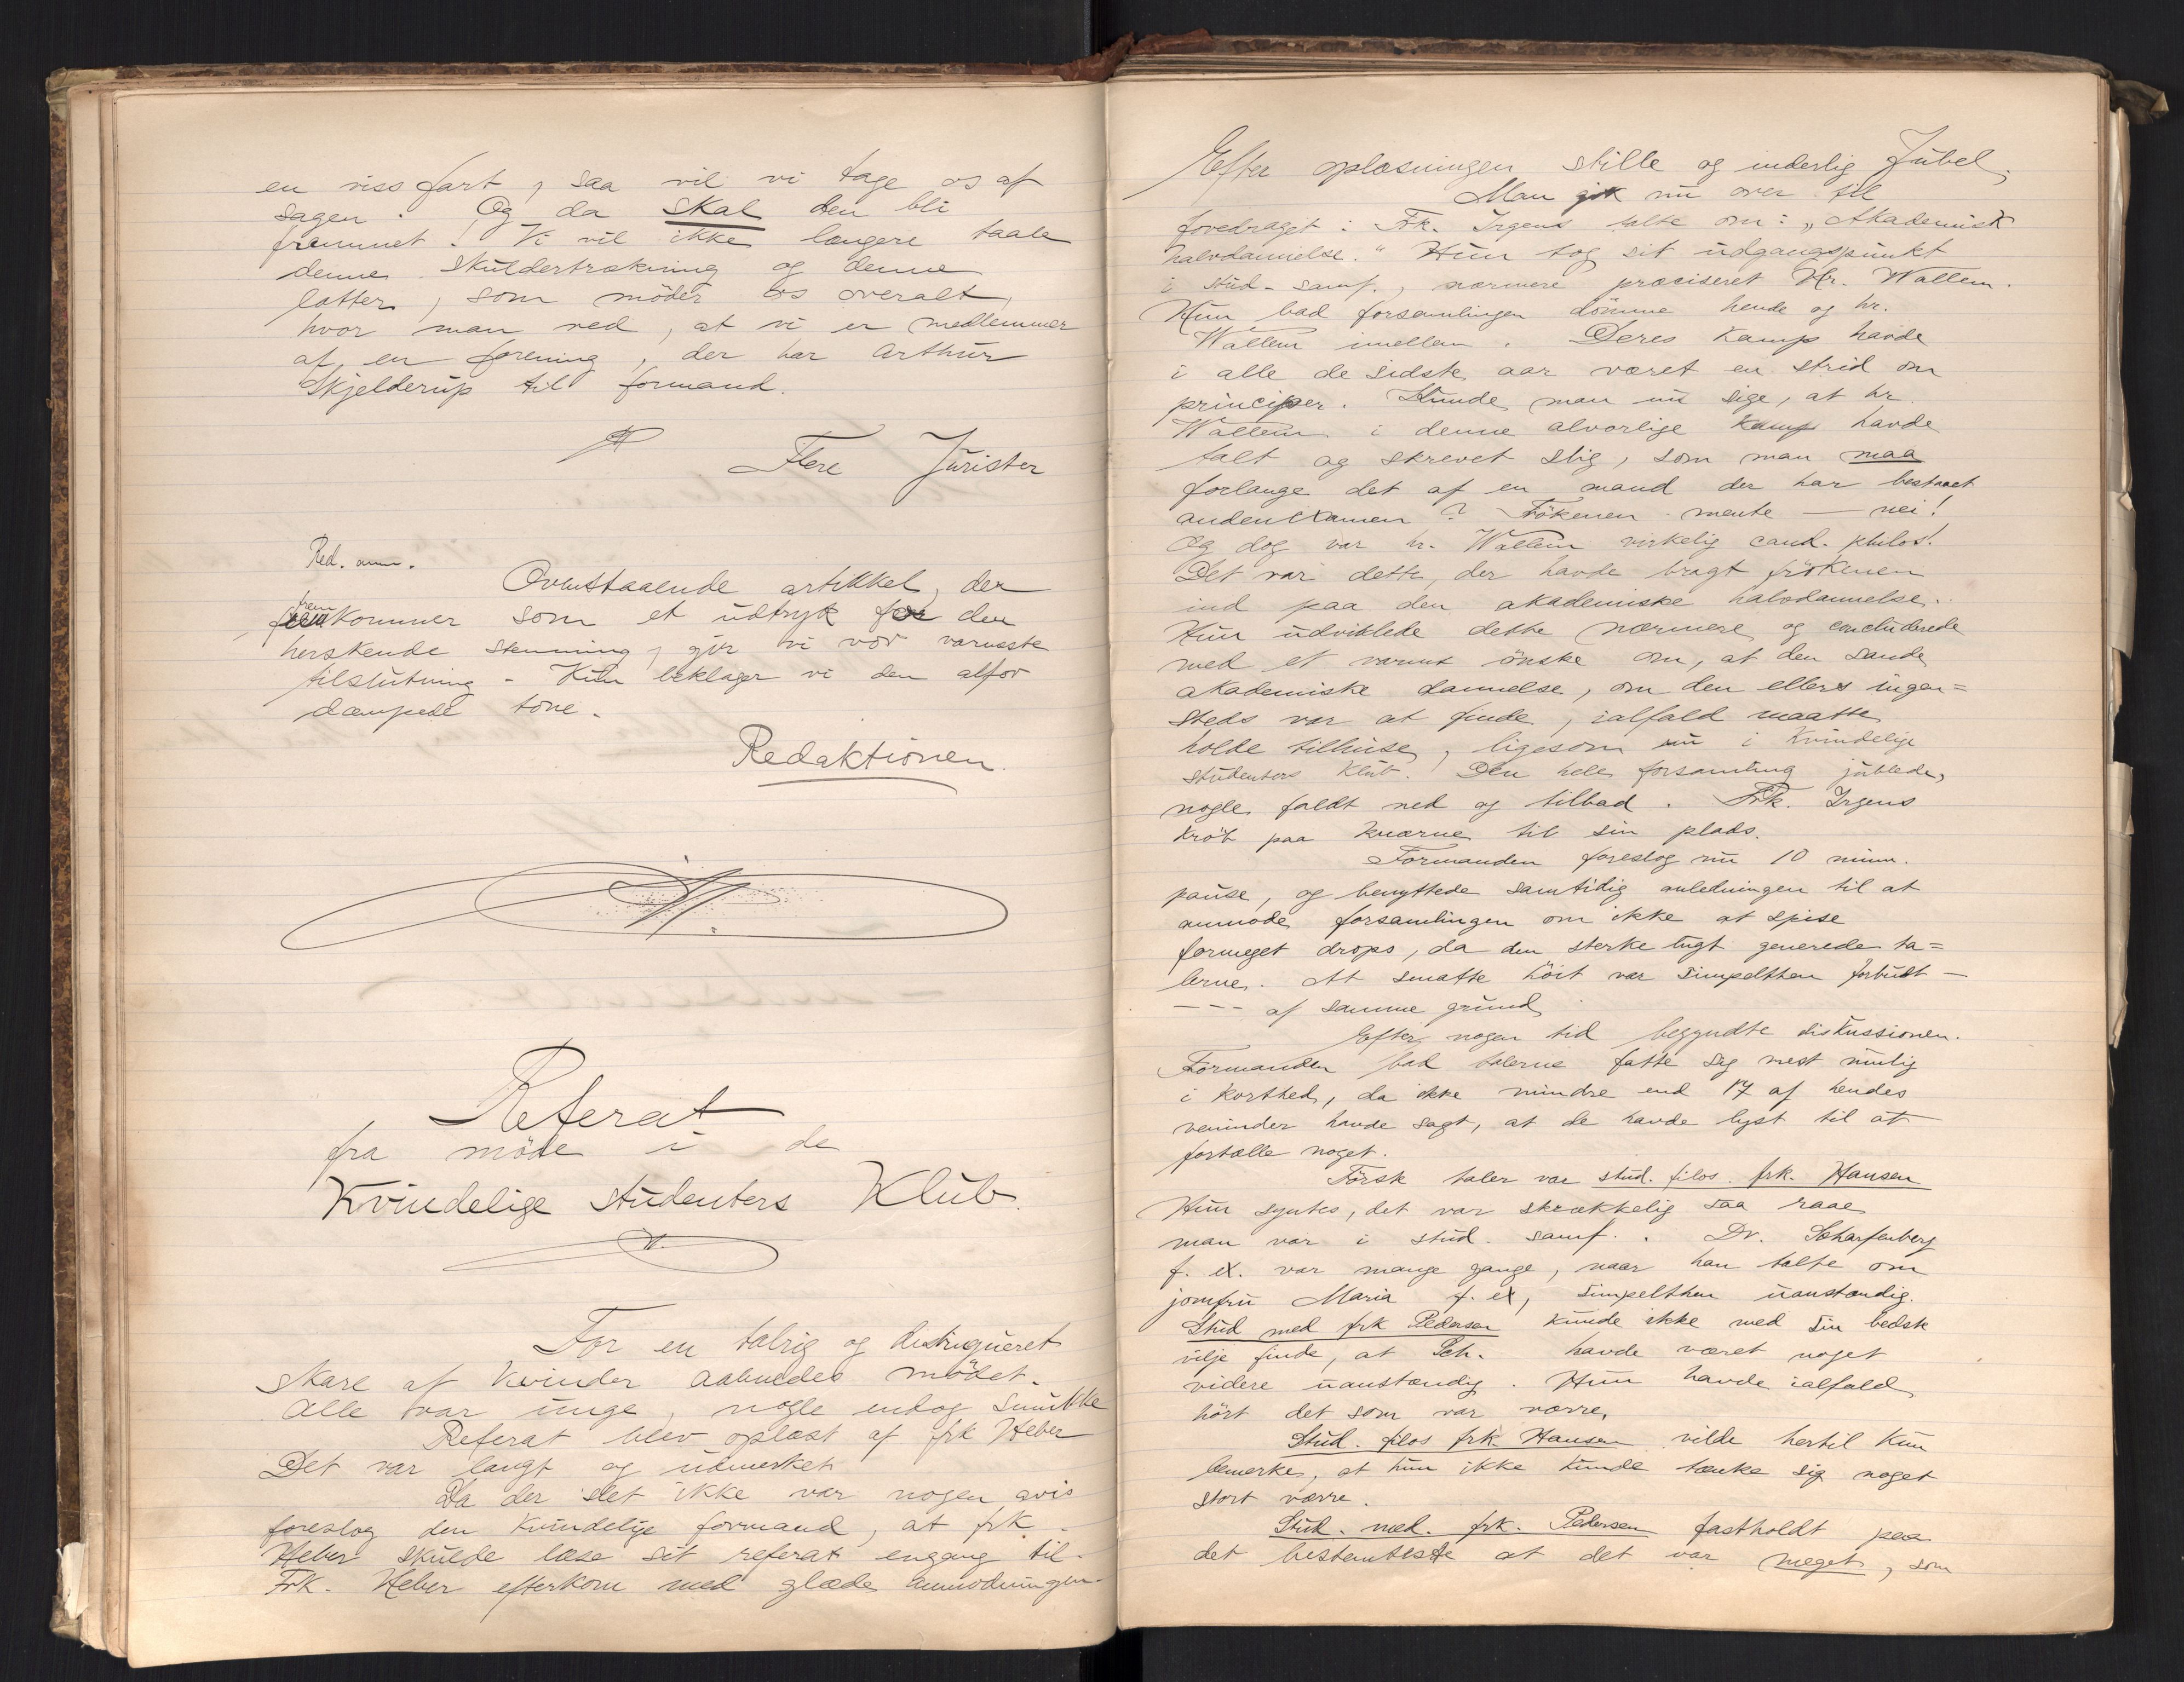 en viss fart, saa vil vi tage os af
sagen. Og da skal den bli
fremmet! Vi vil ikke længere taale
denne skuldertrækning og denne
latter, som möder os overalt,
hvor man ved, at vi er medlemmer
af en forening, der har Arthur
Skjelderup til formand.
Flere Jurister
Red. anm.
Ovenstaaende artikkel, der
fremkommer som et udtryk for den
herskende stemning, gir vi vor varmeste
tilslutning - Kun beklager vi den altfor
dæmpede tone.
Redaktionen.
Referat
fra möde i de
Kvindelige studenters Klub.
For en talrig og distingueret
skare af kvinder aabnedes mödet.
Alle var unge, nogle endog smukke
Referat blev oplæst af frk Heber
Det var langt og udmerket
Da der slet ikke var nogen avis
foreslog den kvindelige formand, at frk.
Heber skulde læse sit referat engang til.
Frk. Heber efterkom med glæde anmodningen.
Efter oplæsningen stille og inderlig Jubel.
Man gik nu over til
foredraget: Frk. Irgens talte om: „Akademisk
halvdannelse." Hun tog sit udgangspunkt
i stud-samf., nærmere præciseret Hr. Wallem.
Hun bad forsamlingen dömme hende og hr.
Wallem imellem. Deres kamp havde
i alle de sidste aar været en strid om
principer. Kunde man nu sige, at hr.
Wallem i denne alvorlige kamp havde
talt og skrevet slig, som man maa
forlange det af en mand der har bestaaet
andenexamen? Frökenen mente — nei!
Og dog var hr. Wallem virkelig cand. philos.
Det var dette, der havde bragt frökenen
ind paa den akademiske halvdannelse.
Hun udviklede dette nærmere og concluderede
med et varmt önske om, at den sande
akademiske dannelse, om den ellers ingen=
steds var at finde, ialfald maatte
holde tilhuse, ligesom nu i Kvindelige
studenters Klub. Den hele forsamling jublede,
nogle faldt ned og tilbad. Frk. Irgens
kröb paa knærne til sin plads.
Formanden foreslog nu 10 minn.
pause, og benyttede samtidig anledningen til at
anmode forsamlingen om ikke at spise
formeget drops, da den sterke lugt generede ta=
lerne. At smatte höit var simpelthen forbudt —
--- af samme grund
Efter nogen tid begyndte diskussionen.
Formanden bad talerne fatte sig mest mulig
i korthed, da ikke mindre end 17 af hendes
veninder havde sagt, at de havde lyst til at
fortælle noget.
Försk taler var stud. filos. frk. Hansen
Hun syntes, det var skrækkelig saa raae
man var i stud. samf.. Dr. Scharfenberg
f. ex. var mange gange, naar han talte om
jomfru Maria f. ex, simpelthen uanstændig.
Stud med frk Pedersen kunde ikke med sin bedste
vilje finde, at Sch. havde været noget
videre uanstændig. Hun havde ialfald
hört det som var værre.
Stud. filos frk Hansen vilde hertil kun
bemerke, at hun ikke kunde tænke sig noget
stort værre.
Stud. med. frk. Pedersen fastholdt paa
det bestemteste at det var meget, som